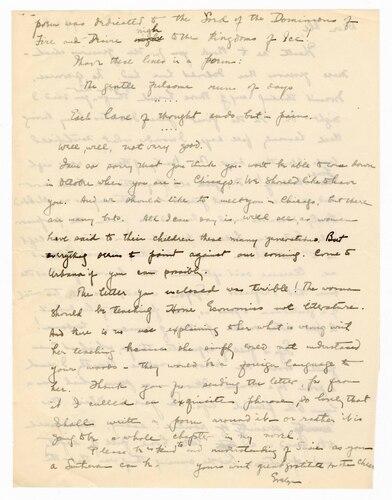 poem was dedicated to the Lord of the Dominions of
Fire and Desire nigh to the Kingdoms of Ice!
I have these lines in a poem:
The gentle fulsome runes of days
.....
Each lane of thought ends but in pain.
Well, well, not very good.
I am so sorry that you think you won't be able to come down
in October when you are in Chicago. We should like to have
you. And we should like to meet you in Chicago, but there
are many buts. All I can say is, we'll see, as women
have said to their children these many generations. But
everything seems to point against our coming. Come to
Urbana if you can possibly.
The letter you enclosed was terrible! The woman
should be teaching Home Economics not literature.
And there is no use explaining to her what is wrong with
her teaching because she simply would not understand
your words — they would be a foreign language to
her. Thank you for sending the letter, for from
it I culled an exquisite phrase, so lovely that
I shall write a poem around it or rather it is
going to be a whole chapter in my novel.
Please be kind to and understanding of as you
a can be. Yours with great gratitude for the